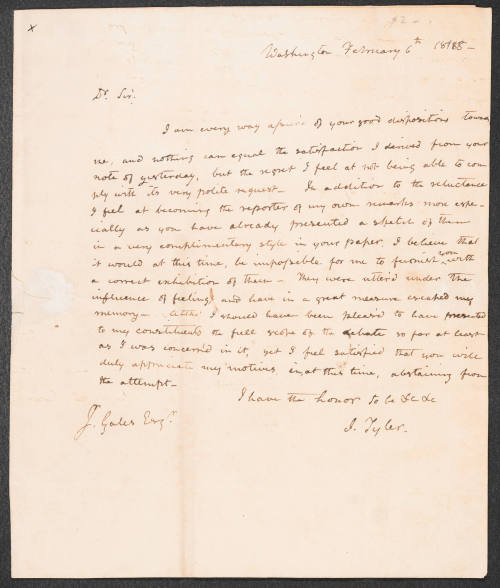 x
Washington February 6th 1818 -
Dr. Sir.
I am every way apriz'd of your good dispositions towards
me, and nothing can equal the satisfaction I derived from your
note of yesterday, but the regret I feel at not being able to com
ply with its very polite request - In addition to the reluctance
I feel at becoming the reporter of my own remarks more espe-
cially as you have already presented a sketch of them
in a very complimentary style in your paper, I believe that
it would at this time, be impossible for me to furnish you with
a correct exhibition of them - They were utter'd under the
influence of feeling and have in a great measure escaped my
memory - Altho' I should have been pleas'd to have presented
to my constituents the full scope of the debate so far at least
as I was concern'd in it, yet I feel satisfied that you will
duly appreciate my motives in, at this time, abstaining from
the attempt -
I have the honor to be &c &c
J. Gales Esqr.
J. Tyler -